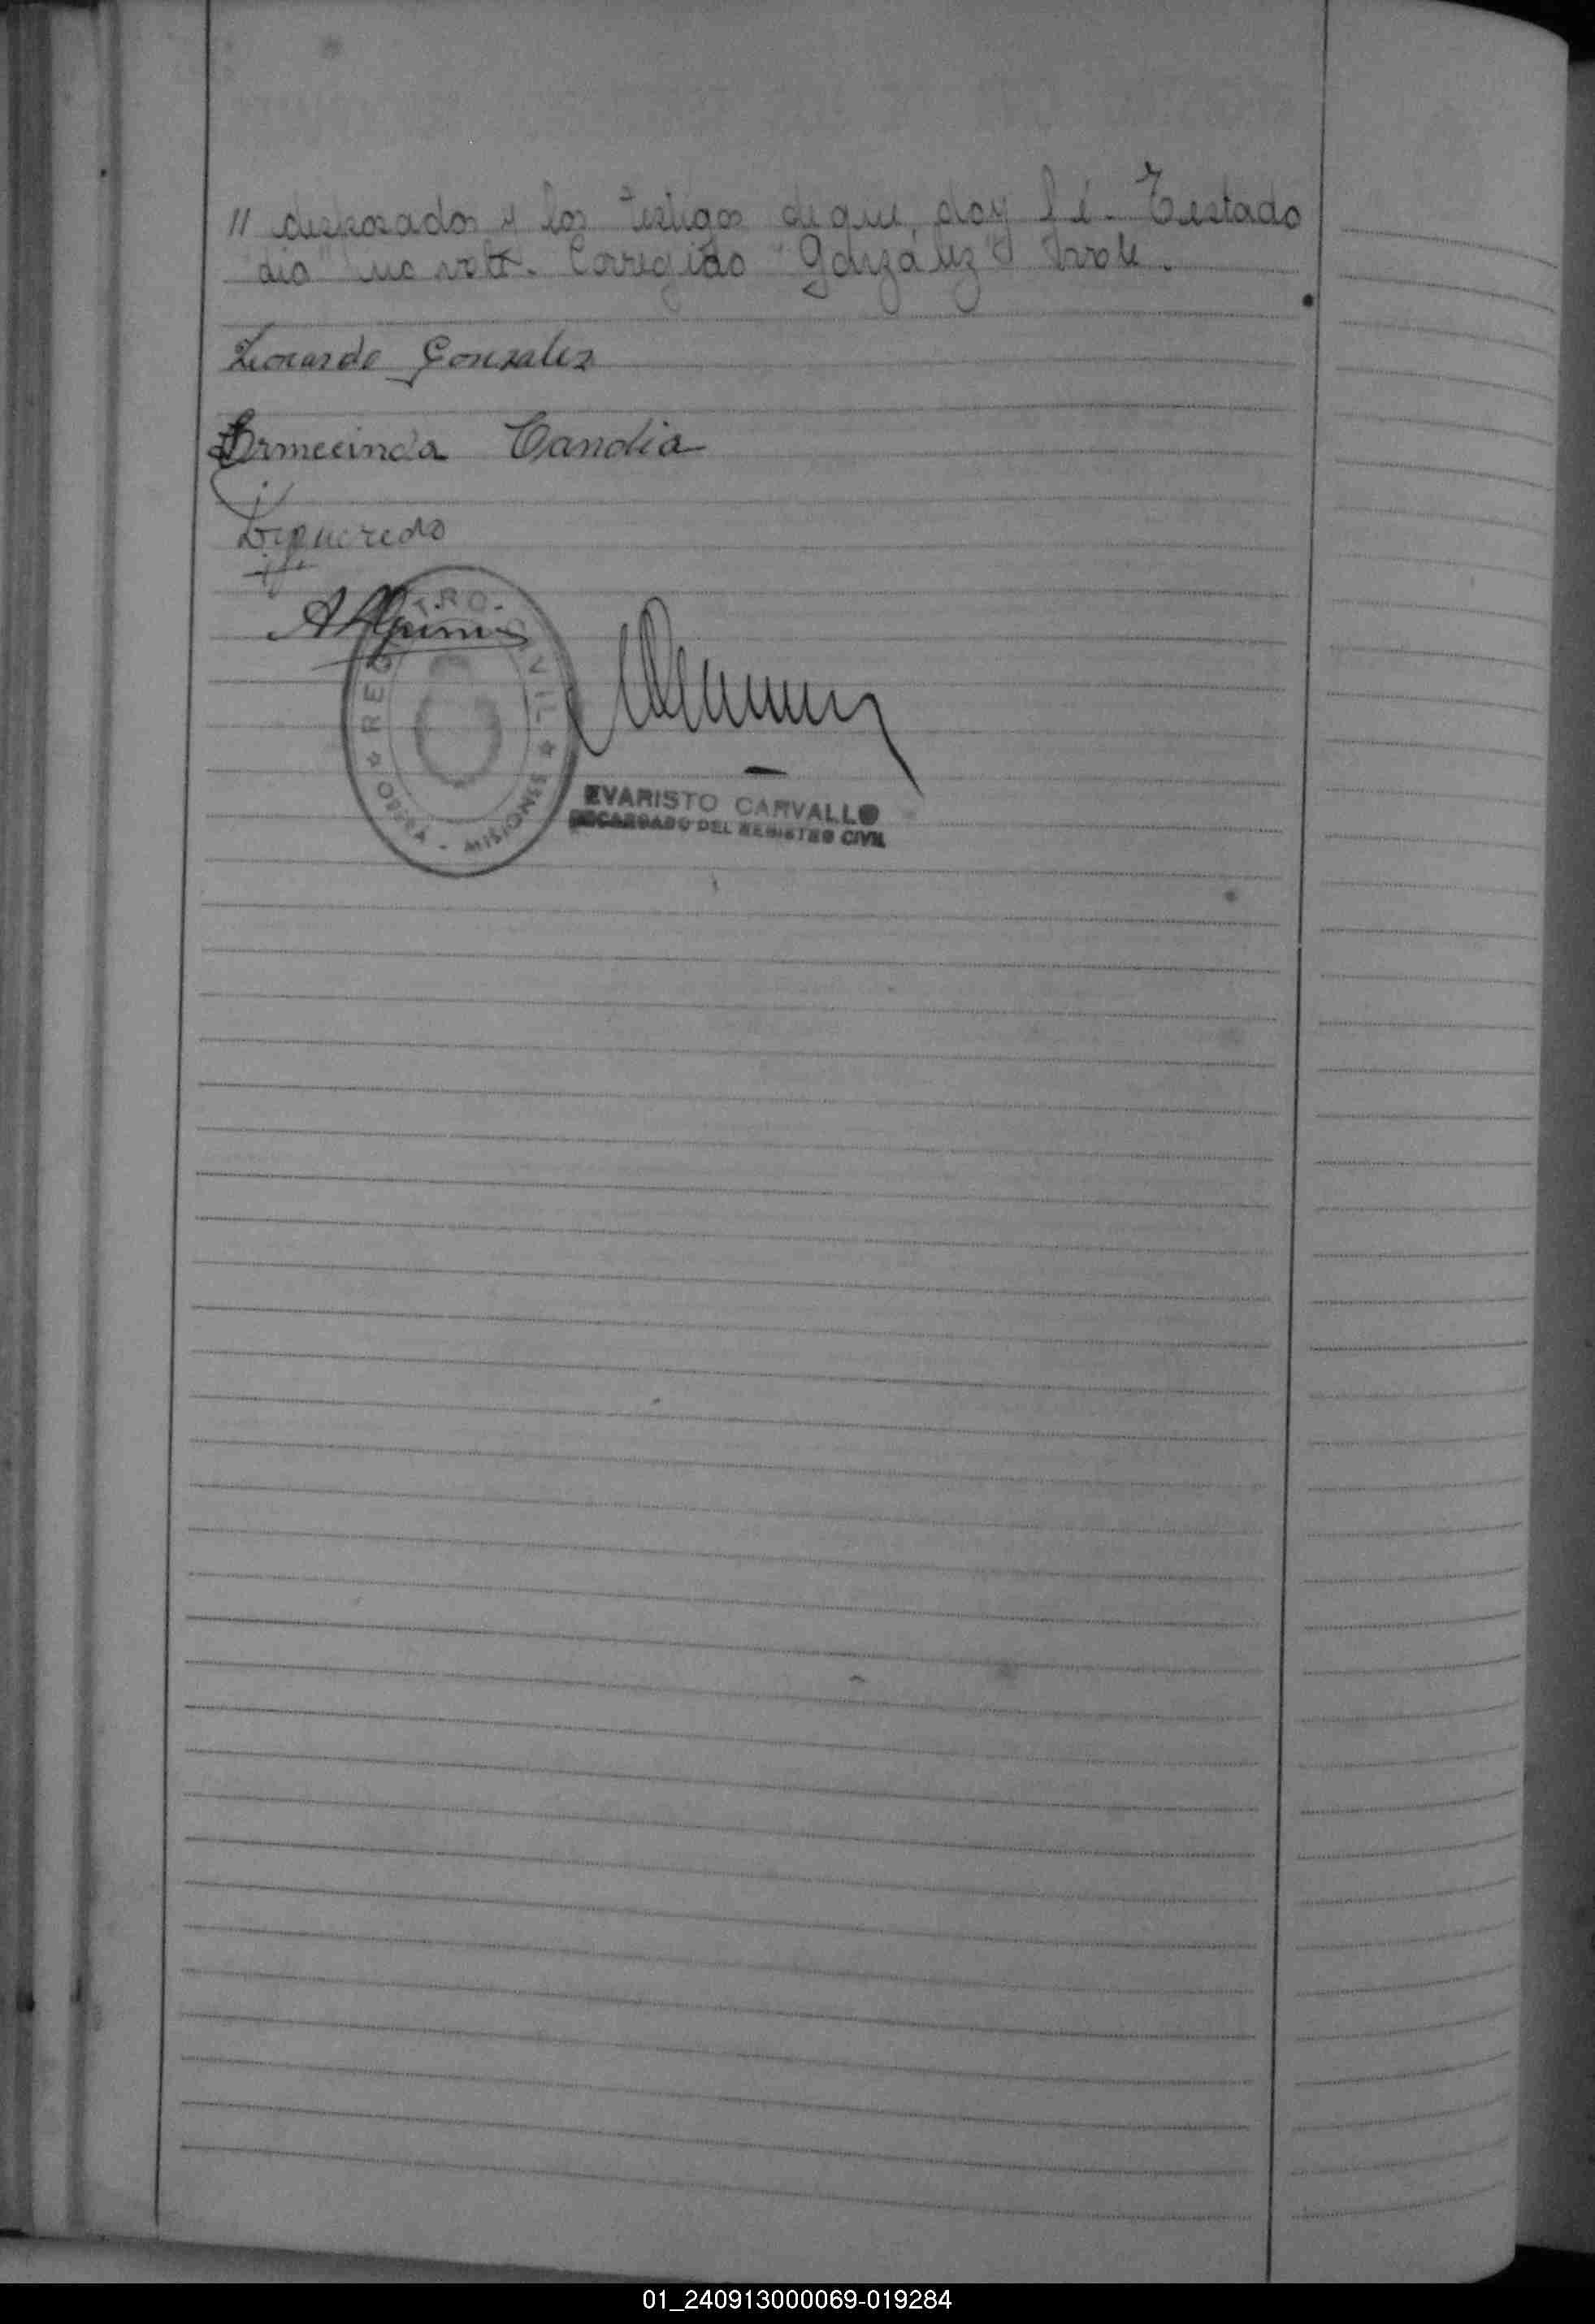 " desposados y los testigos de que doy fé. Testado
"dia" no vale. Corregido "Gonzáliz" vale.
Leonardo Gonzalez
Ermecinda Candia
Figueredo
REGISTRO CIVIL
OBERA - MISIONES
EVARISTO CARVALLO
ENCARGADO DEL REGISTRO CIVIL
01_240913000069-019284